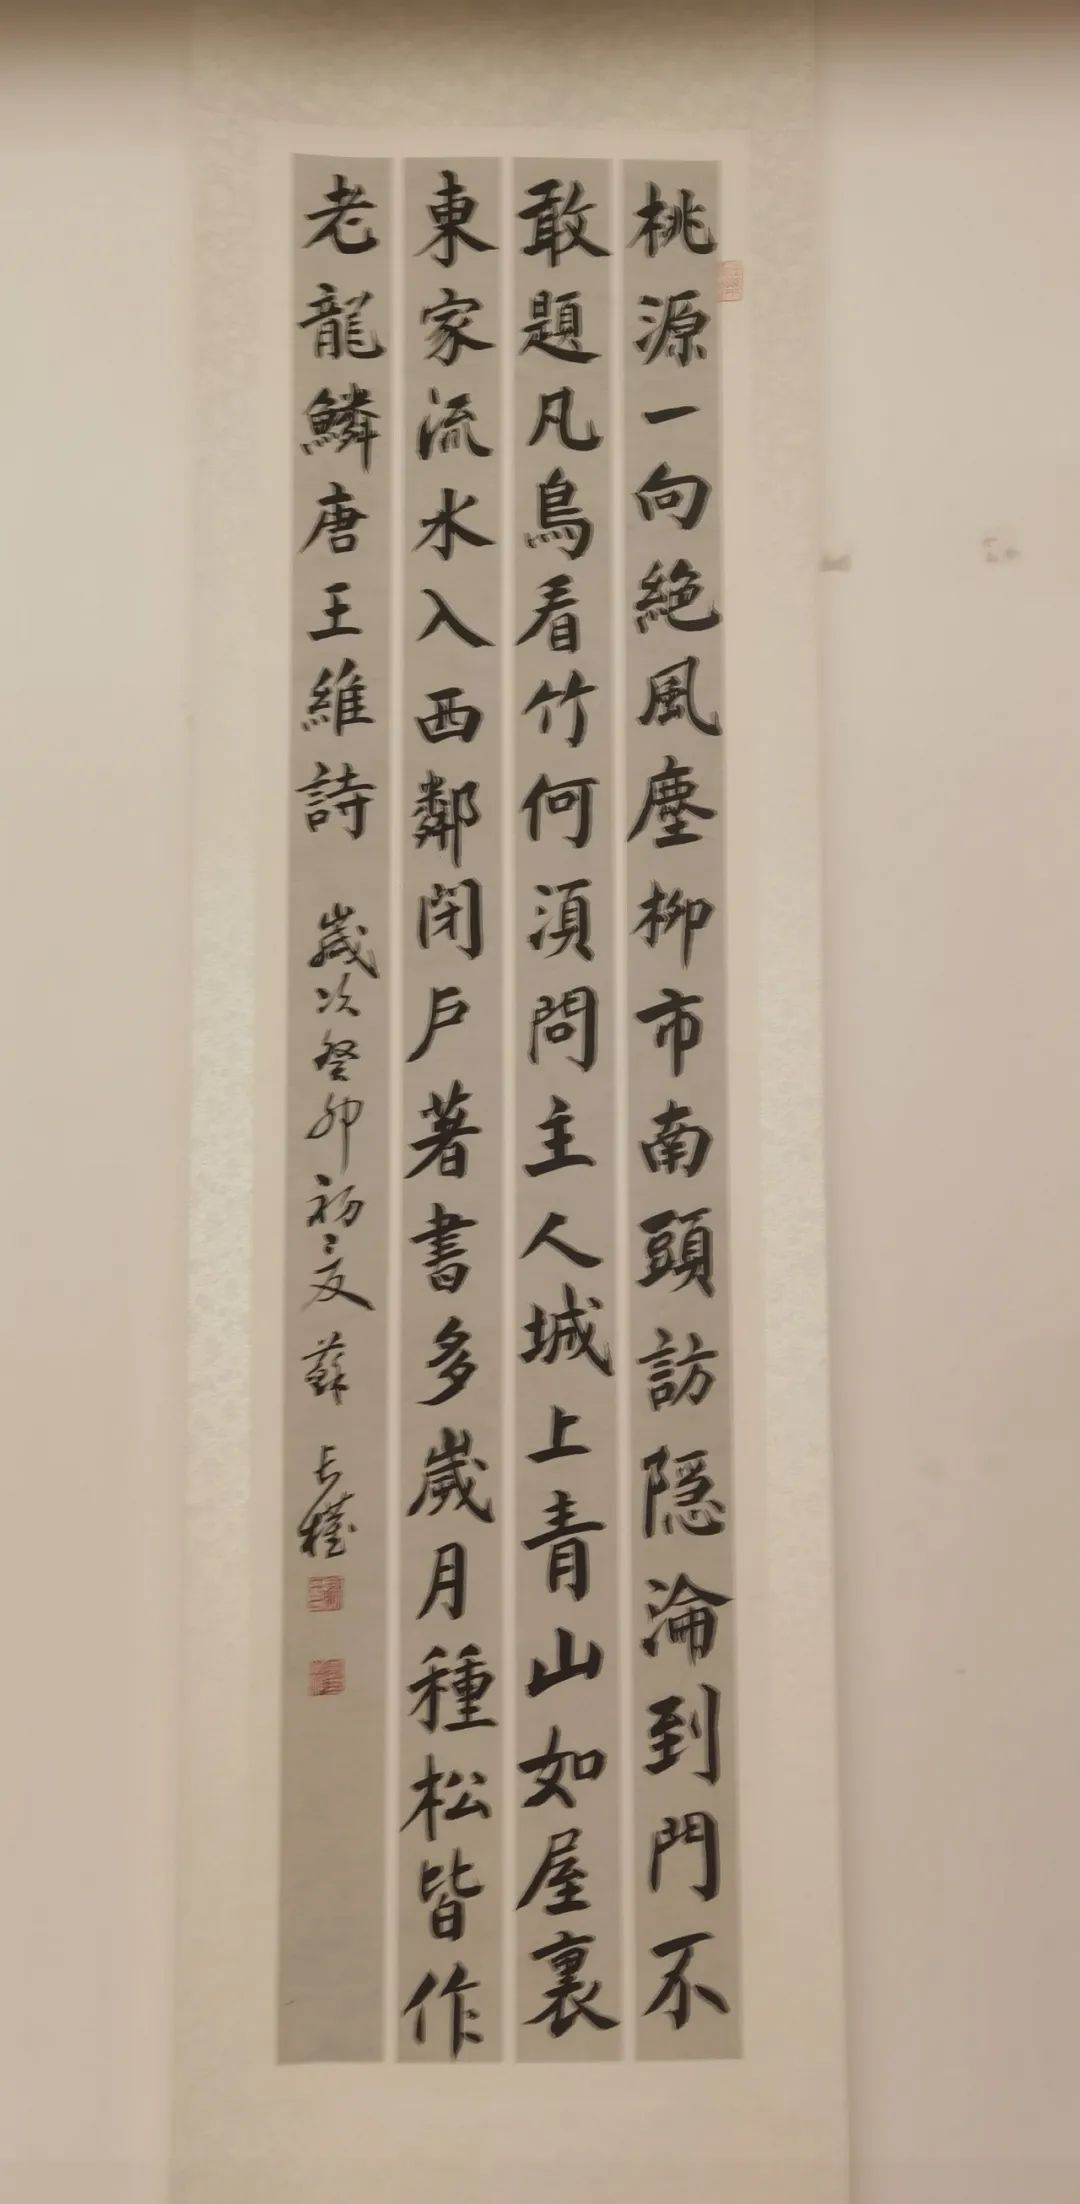 桃源一向絶風塵柳市南頭訪隠淪到門不
敢題凡鳥看竹何湏問主人城上青山如屋裏
東家流水入西鄰閉戶著書多歲月種松皆作
老龍鱗唐王維詩 歲次癸卯初夏 蘇長